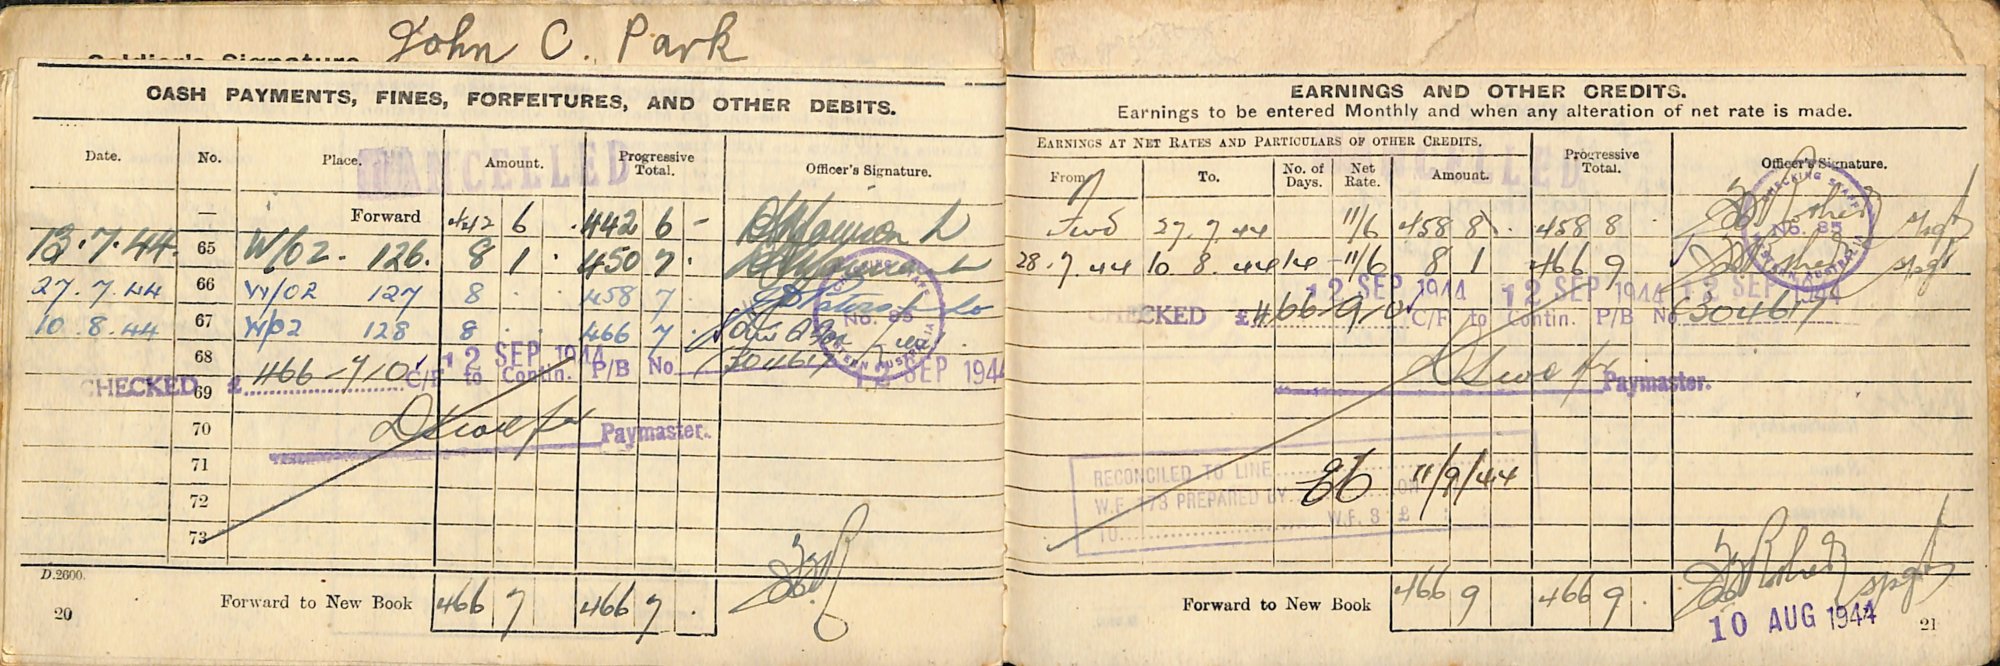 Soldier's Signature John C. Park
CANCELLED
CASH PAYMENTS, FINES, FORFEITURES, AND OTHER DEBITS.
Date. No. Place. Amount. Progressive Total. Officer's Signature.
— Forward 442 6 442 6 –
13.7.44. 65 W/02. 126. 8 1 . 450 7 .
27.7.44 66 W/02 127 8 . . 458 7 .
10.8.44 67 W/02 128 8 . . 466 7 .
68
CHECKED £ 466-7-0 C/F to Contin. P/B No 1304617
12 SEP 1944
12 SEP 1944
69
70 Paymaster.
71
72
73
CHECKING STAFF No. 85 WESTERN AUSTRALIA
D.2600.
Forward to New Book 466 7 466 7 .
20
CANCELLED
EARNINGS AND OTHER CREDITS.
Earnings to be entered Monthly and when any alteration of net rate is made.
EARNINGS AT NET RATES AND PARTICULARS OF OTHER CREDITS. Progressive Total. Officer's Signature.
From To. No. of Days. Net Rate. Amount.
Fwd 27.7.44 11/6 458 8 . 458 8
28.7.44 10.8.44 14 11/6 8 1 466 9
CHECKING STAFF No. 85 WESTERN AUSTRALIA
12 SEP 1944 12 SEP 1944 12 SEP 1944
CHECKED £ 466-9-0 C/F to Contin. P/B No 1304617
Paymaster.
RECONCILED TO LINE
W.F. 173 PREPARED BY ON 11/9/44
TO W.F. 3 £
Forward to New Book 466 9 466 9 .
10 AUG 1944
21